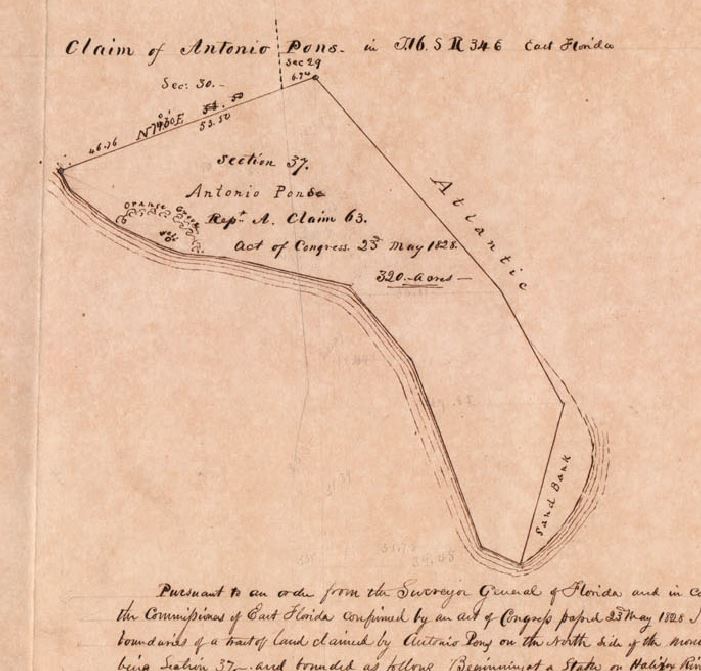 Claim of Antonio Pons. in T.16. S R 34 E East Florida
Sec 29
Sec: 30.-
6.74
N 79°30' E
53.50
46.76
Section 37.
Antonio Pons
Rept. A. Claim 63.
Act of Congress. 23d May 1828.
320-Acres-
Orange Grove
Atlantic
Sand Bank
Pursuant to an order from the Surveyor General of Florida and in co
the Commissioners of East Florida confirmed by an act of Congress passed 23d May 1828 I
boundaries of a tract of land claimed by Antonio Pons on the North side of the mou
being Section 37 - and bounded as follows Beginning at a Stake on Halifax Riv